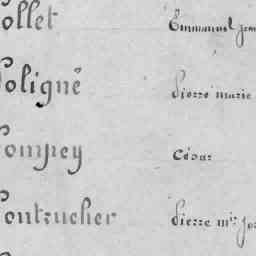 ollet Emmanuel
Poligné Pierre marie
Pompey César
Pontrucher Pierre m